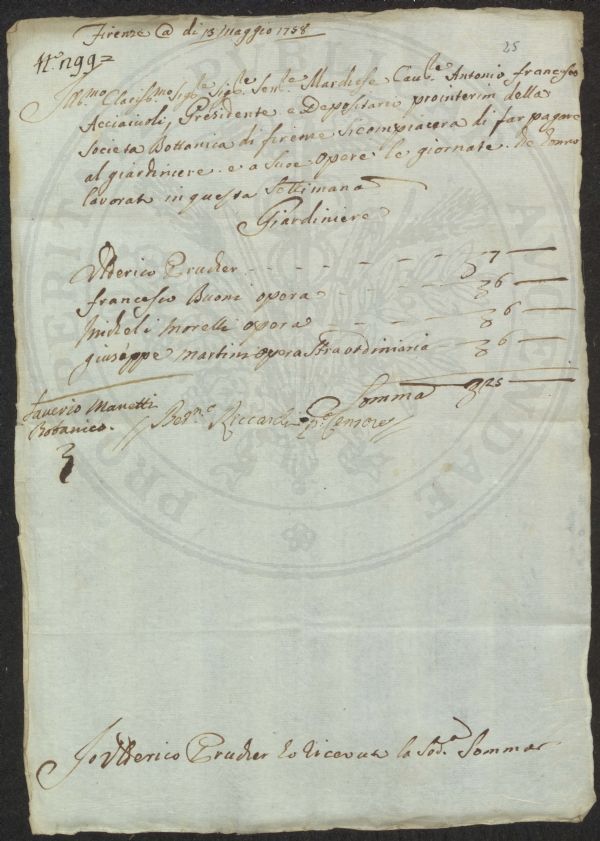 Firenze @ di 13 Maggio 1758
25
N.º 199
Ill.mo Claris.mo Sig.re Sig.re Sen.re Marchese Cau.re Antonio francesco
Acciaiuoli, Presidente e Depositario prointerim della
Società Bottanica di firenze si compiacerà di far pagare
al giardiniere e a Suoe opere le giornate che Vonno
lavorate in questa Settimana
Giardiniere
Ulderico Prucher - - - - - - 7 —
francesco Buoni opera - - - - 6 —
Micheli Morelli opera - - - 6 —
giuseppe Martini opera Straordinaria - 6 —
Somma 25 —
Saverio Manetti
Botanico.
Bern.º Riccardi P.º Censore
PROSPERITATI PUBLICAE AUGENDAE
Io Ulderico Prucher ho riceuuta la Sod.a Somma